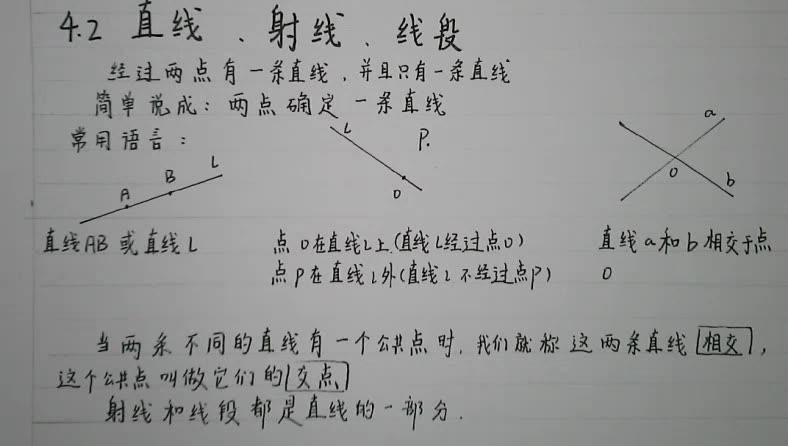 4.2 直线、射线、线段
经过两点有一条直线,并且只有一条直线
简单说成:两点确定一条直线
常用语言:
A B L
L P. O
a O b
直线AB或直线L
点O在直线L上(直线L经过点O)
点P在直线L外(直线L不经过点P)
直线a和b相交于点
O
当两条不同的直线有一个公共点时,我们就称这两条直线相交,
这个公共点叫做它们的交点、
射线和线段都是直线的一部分.